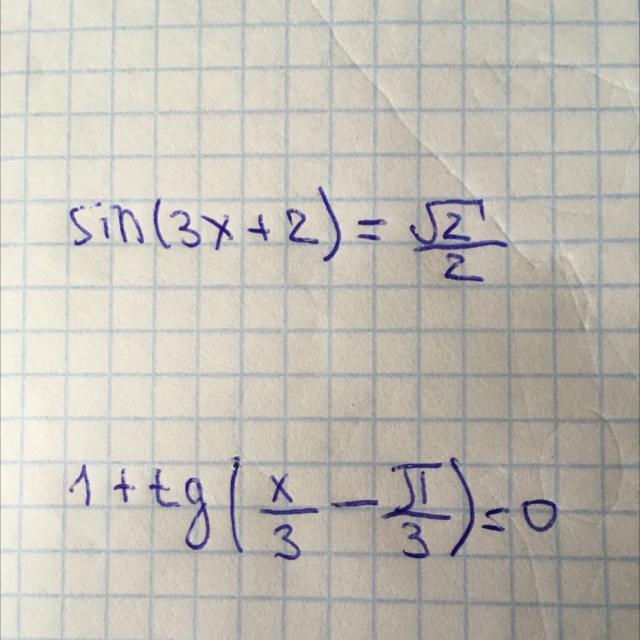 sin(3x+2) = √2/2
1 + tg(x/3 − π/3) = 0